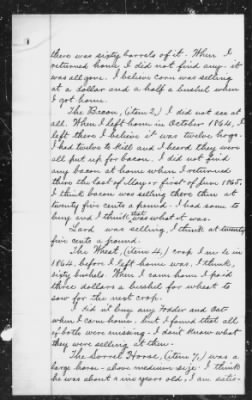 there was sixty barrels of it. When I
returned home, I did not find any. it
was all gone. I believe corn was selling
at a dollar and a half a bushel when
I got home.
The Bacon, (item 2,) I did not see at
all. When I left home in October 1864, I
left there I believe it was twelve hogs.
I had twelve to kill and I heard they were
all put up for bacon. I did not find
any bacon at home when I returned
there the last of May or first of June 1865.
I think bacon was selling there then at
twenty five cents a pound. I had some to
buy and I think that was what it was.
Lard was selling, I think at twenty
five cents a pound.
The Wheat, (item 4,) crop I made in
1864, before I left home was, I think,
sixty bushels. When I came home I paid
three dollars a bushel for wheat to
sow for the next crop.
I did n't buy any fodder and oats
when I came home. but I found that all
of both were missing. I don't know what
they were selling at then.
The Sorrel Horse, (item 7,) was a
large horse - above medium size. I think
he was about a nine years old, I am satis-